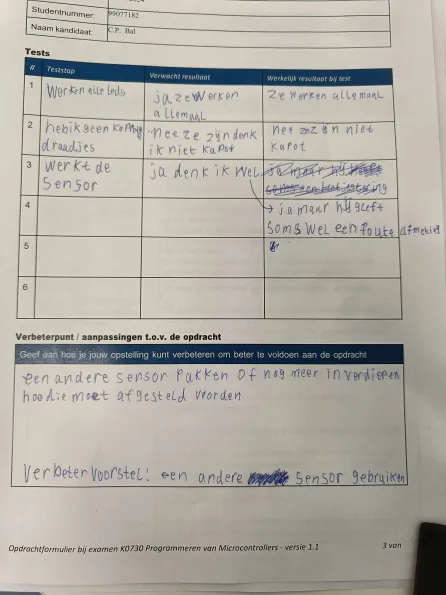 Studentnummer: 99077182
Naam kandidaat: C.P. Bal
Tests
# Teststap Verwacht resultaat Werkelijk resultaat bij test
1 Werken alle leds ja ze werken allemaal ze werken allemaal
2 heb ik geen kapotte draadjes nee ze zijn denk ik niet kapot nee ze zijn niet kapot
3 werkt de sensor ja denk ik wel
→ ja maar hij geeft
4 soms wel een foute afmeting
5
6
Verbeterpunt / aanpassingen t.o.v. de opdracht
Geef aan hoe je jouw opstelling kunt verbeteren om beter te voldoen aan de opdracht
een andere sensor pakken of nog meer in verdiepen
hoe die moet afgesteld worden
verbetervoorstel: een andere sensor gebruiken
Opdrachtformulier bij examen K0730 Programmeren van Microcontrollers - versie 1.1
3 van